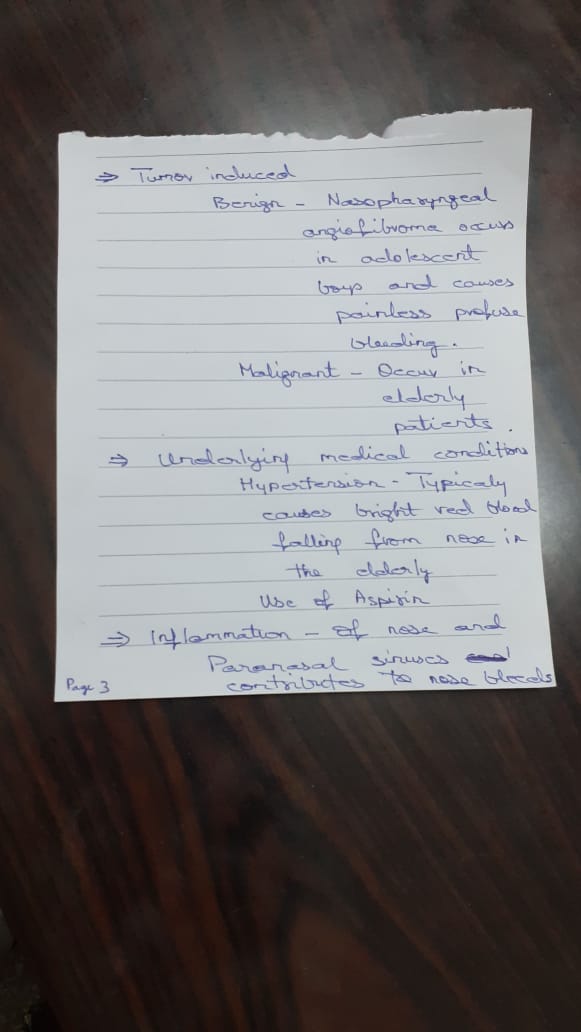 ⇒ Tumor induced
Benign - Nasopharyngeal
angiofibroma occurs
in adolescent
boys and causes
painless profuse
bleeding.
Malignant - Occur in
elderly
patients.
⇒ Underlying medical conditions
Hypertension - Typicaly
causes bright red blood
falling from nose in
the elderly
Use of Aspirin
⇒ Inflammation - of nose and
Paranasal sinuses
contributes to nose bleeds
Page 3